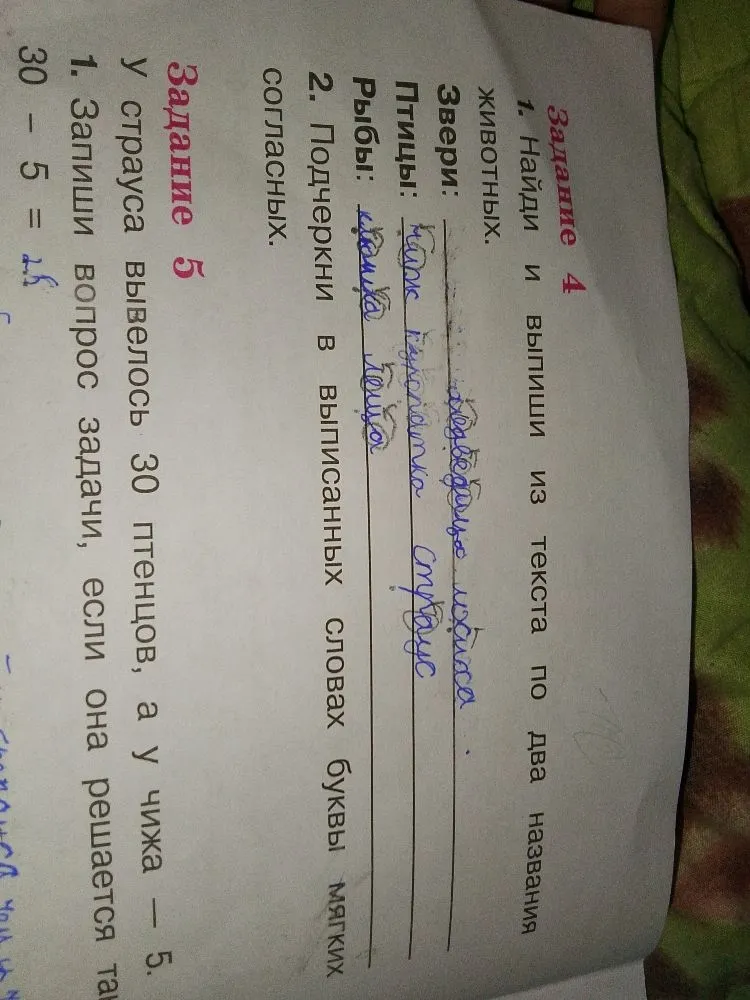 Задание 4
1. Найди и выпиши из текста по два названия
животных.
Звери: медведица лосиха
Птицы: чиж страус
Рыбы: леща
2. Подчеркни в выписанных словах буквы мягких
согласных.
Задание 5
У страуса вывелось 30 птенцов, а у чижа — 5.
1. Запиши вопрос задачи, если она решается так
30 - 5 =